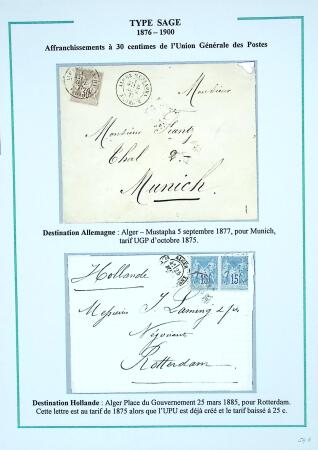 TYPE SAGE
1876 – 1900
Affranchissements à 30 centimes de l'Union Générale des Postes
Monsieur
Monsieur
Thal 2
Munich.
Destination Allemagne : Alger – Mustapha 5 septembre 1877, pour Munich,
tarif UGP d'octobre 1875.
Hollande
15 15
Messieurs J. Laming
Négociant
Rotterdam
Destination Hollande : Alger Place du Gouvernement 25 mars 1885, pour Rotterdam.
Cette lettre est au tarif de 1875 alors que l'UPU est déjà créé et le tarif baissé à 25 c.